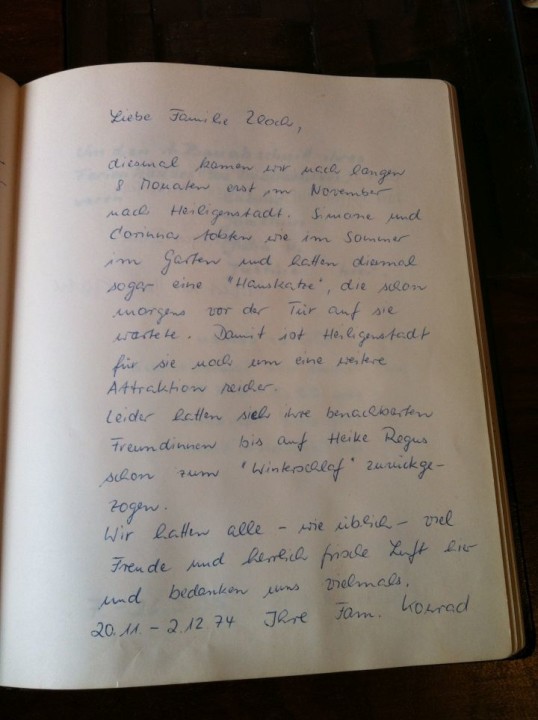 Liebe Familie Zloch,
diesmal kamen wir nach langen
8 Monaten erst im November
nach Heiligenstadt. Simone und
Corinna tobten wie im Sommer
im Garten und hatten diesmal
sogar eine "Hauskatze", die schon
morgens vor der Tür auf sie
wartete. Damit ist Heiligenstadt
für sie noch um eine weitere
Attraktion reicher.
Leider hatten sich ihre benachbarten
Freundinnen bis auf Heike Regus
schon zum "Winterschlaf" zurückge-
zogen.
Wir hatten alle - wie üblich - viel
Freude und herrlich frische Luft hier
und bedanken uns vielmals.
20.11. - 2.12.74 Ihre Fam. Konrad